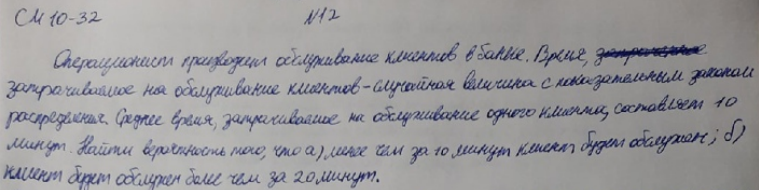 СМ 10-32 №12
Операционист производит обслуживание клиентов в банке. Время,
затрачиваемое на обслуживание клиентов - случайная величина с показательным законом
распределения. Среднее время, затрачиваемое на обслуживание одного клиента, составляет 10
минут. Найти вероятность того, что а) менее чем за 10 минут клиент будет обслужен; б)
клиент будет обслужен более чем за 20 минут.